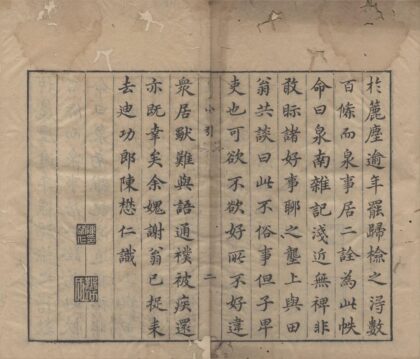 於麓塵逾年罷歸檢之淂數
百條而泉事居二詮為此帙
命曰泉南雜記淺近無裨非
敢眎諸好事聊之壟上與田
翁共談曰此不俗事但子卑
吏也可欲不欲好所不好違
小引 二
衆居獸難與語通襆被疾還
亦既幸矣余媿謝翁已捉耒
去迪功郎陳懋仁識